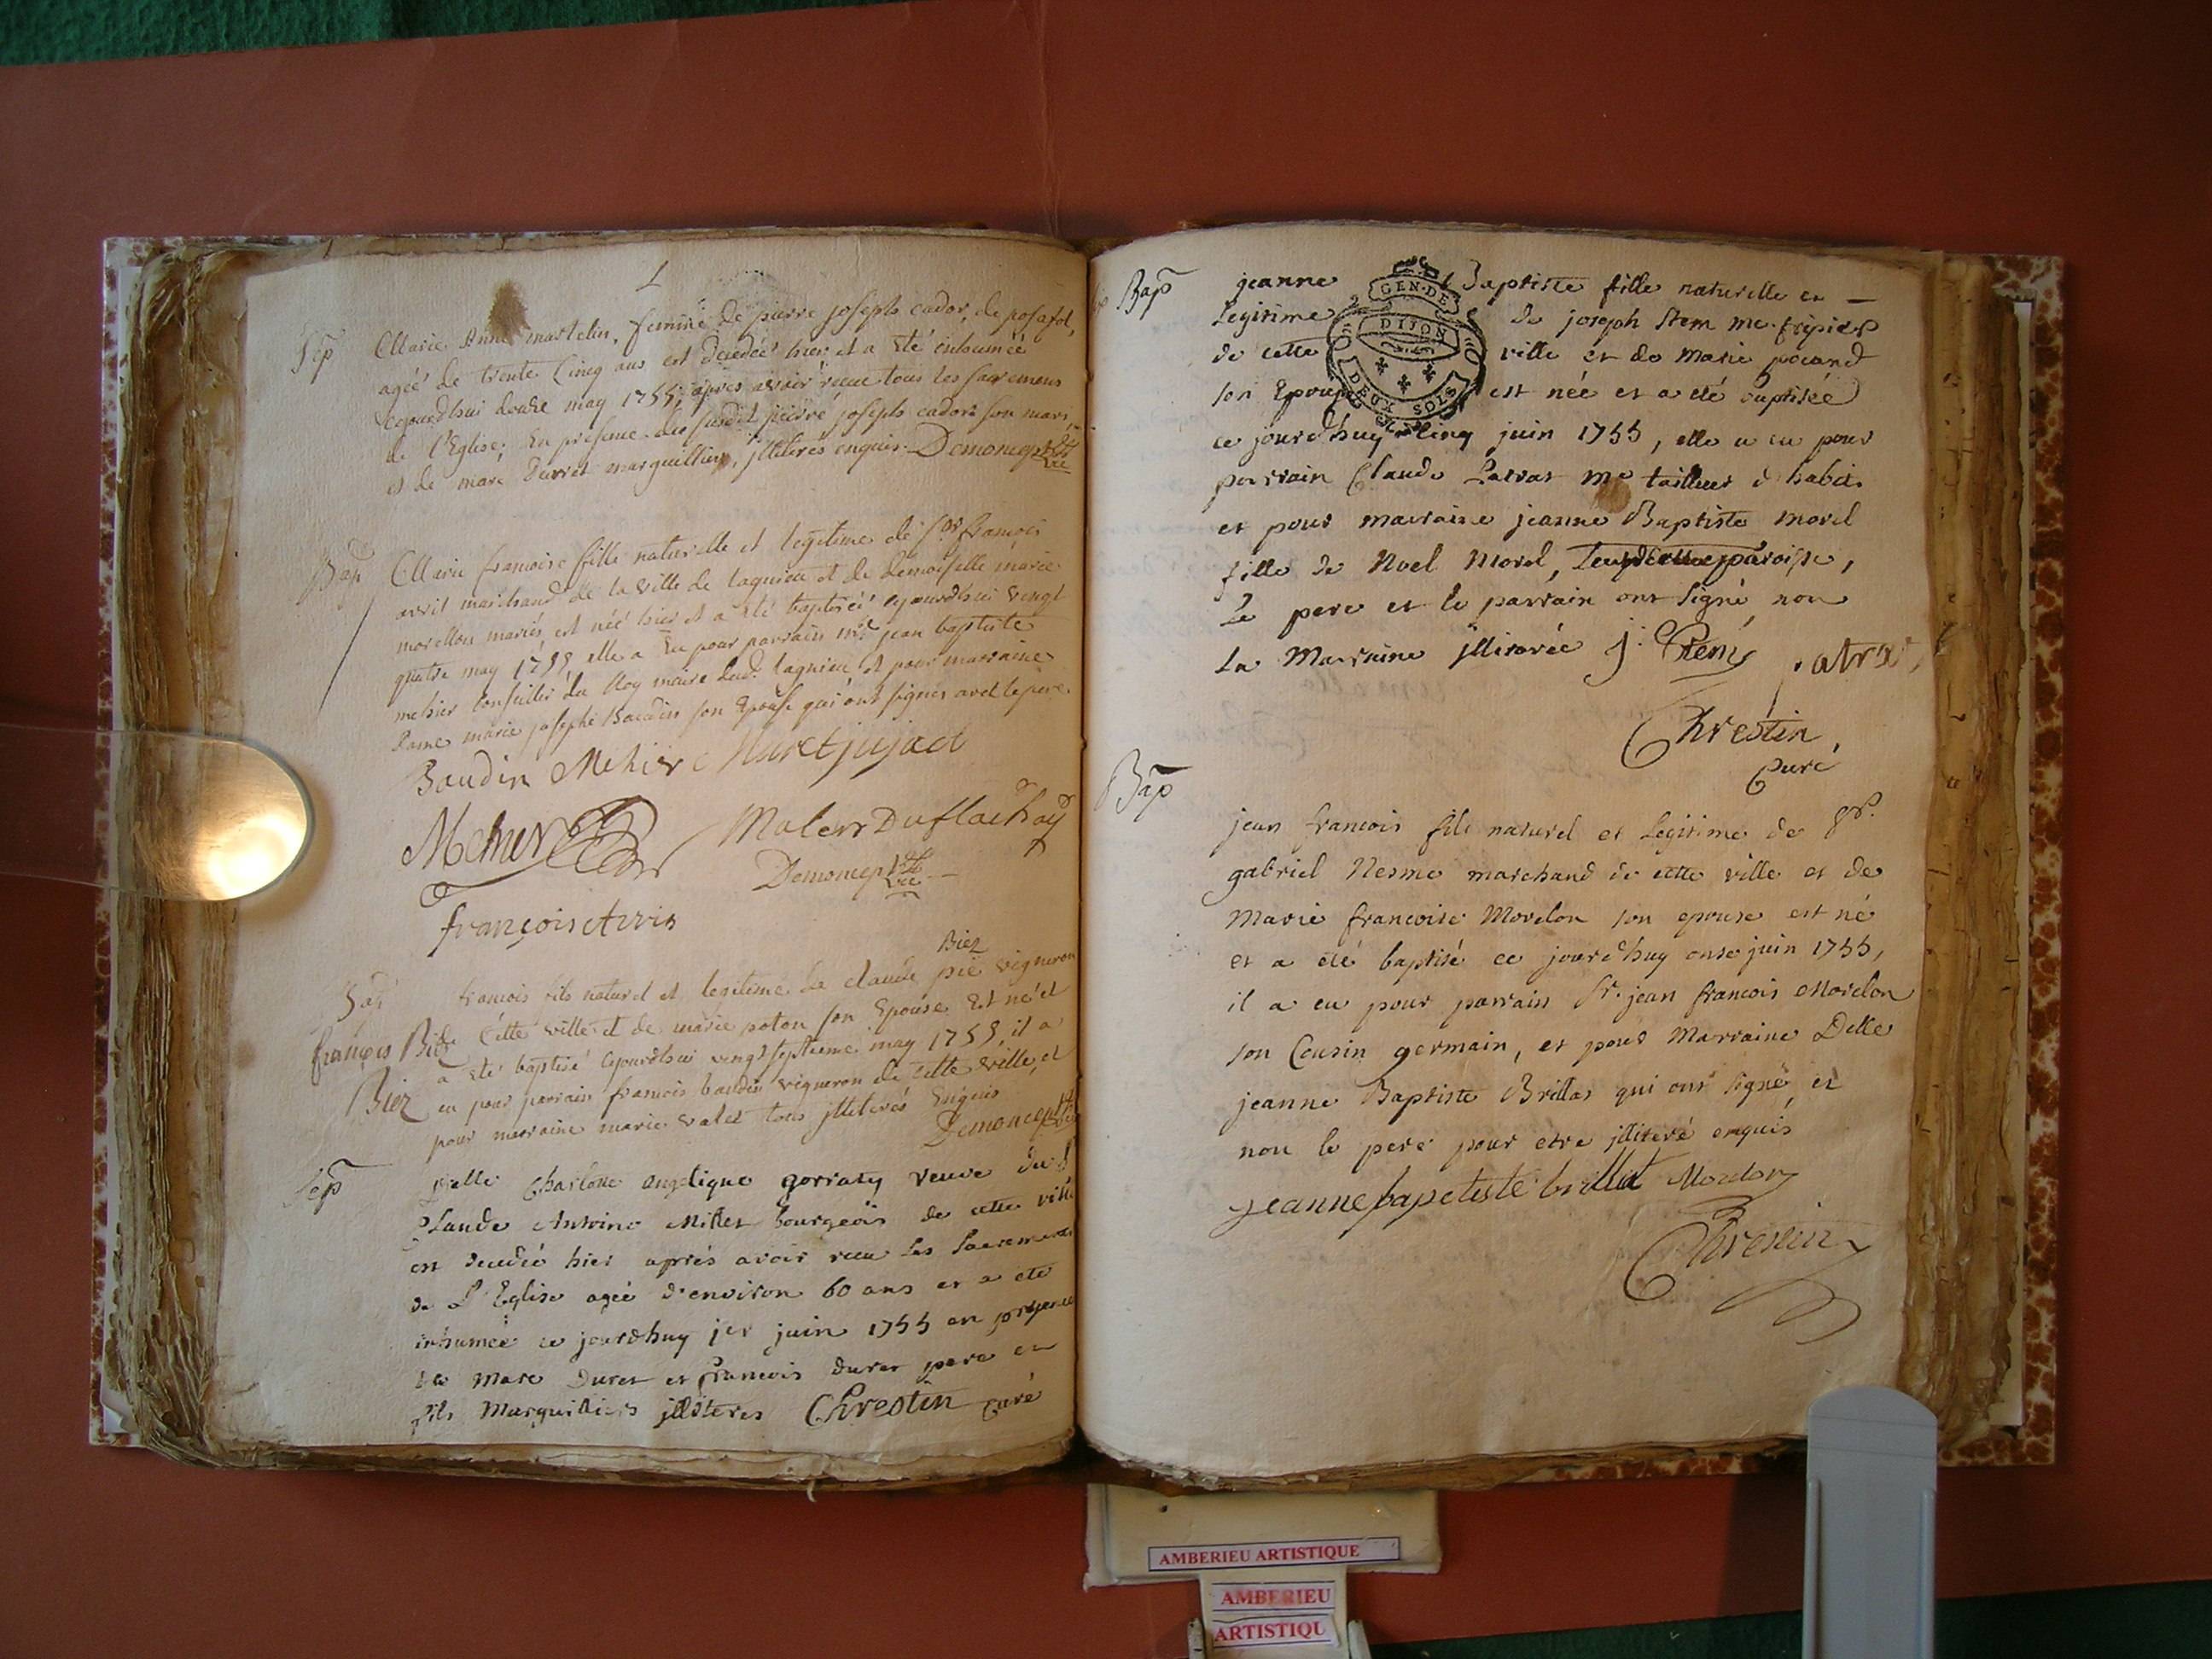 Sep
Marie Anne martelin, femme de pierre joseph cador, de posafol,
agée de trente Cinq ans est décedée hier et a été inhumée
cejourdhui douze may 1755, apres avoir reçue tous les sacremens
de l'Eglise; En presence du susdit pierre joseph cador son mari
et de marc Durret marguillier, jlliterés enquis. Demoncept
Bap
Marie francoise fille naturelle et legitime de sr françois
arvis marchand de la ville de lagnieu et de demoiselle marie
morellon mariés, est née hier et a été baptisée cejourdhui vingt
quatre may 1755, elle a Eu pour parrain mre jean baptiste
mehier Conseiller du Roy maire dud. lagnieu, et pour marraine
dame marie josephe Baudin son Epouse qui ont signés avec le pere.
Baudin Mehier
Mehier
Demoncept
françois Arvis
Bap
françois Biez
Biez
Biez
francois fils naturel et legitime de claude pié vigneron
de Cette ville et de marie poton son Epouse Est né et
a été baptisé cejourdhui vingt septieme may 1755, il a
eu pour parrain francois baudin vigneron de cette ville, et
pour marraine marie valet tous jlliterés Enquis
Demoncept
Sep
Delle Charlotte angelique gorraty veuve du S
Claude Antoine Millet bourgeois de cette ville
est decedée hier aprés avoir recu les Sacrements
de L'Eglise agée d'environ 60 ans et a eté
inhumée ce jourdhuy jer juin 1755 en presence
de Marc Duret et francois duret pere et
fils Marguilliers jlliteres Chrestin curé
Bap
GEN. DE
DIJON
DEUX SOLS
jeanne Baptiste fille naturelle et
Legitime de joseph Stem me. fripier
de cette ville et de Marie pocand
son Epouse est née et a eté baptisée
ce jourdhuy cinq juin 1755, elle a eu pour
parrain Claude Patras me tailleur d habit.
et pour marraine jeanne Baptiste morel
fille de Noel Morel, paroisse,
Le pere et le parrain ont signé, non
La Marraine jlliterée j. Stem patras
Chrestin
Curé
Bap
jean francois fils naturel et Legitime de Sr.
gabriel Nesme marchand de cette ville et de
Marie francoise Morelon son epouse est né
et a eté baptisé ce jourdhuy onse juin 1755,
il a eu pour parrain Sr. jean francois Morelon
son Cousin germain, et pour Marraine Delle
jeanne Baptiste Brillat qui ont signé, et
non le pere pour etre jlliteré enquis
jeanne bapetiste brillat Morelon
Chrestin
AMBERIEU ARTISTIQUE
AMBERIEU
ARTISTIQU